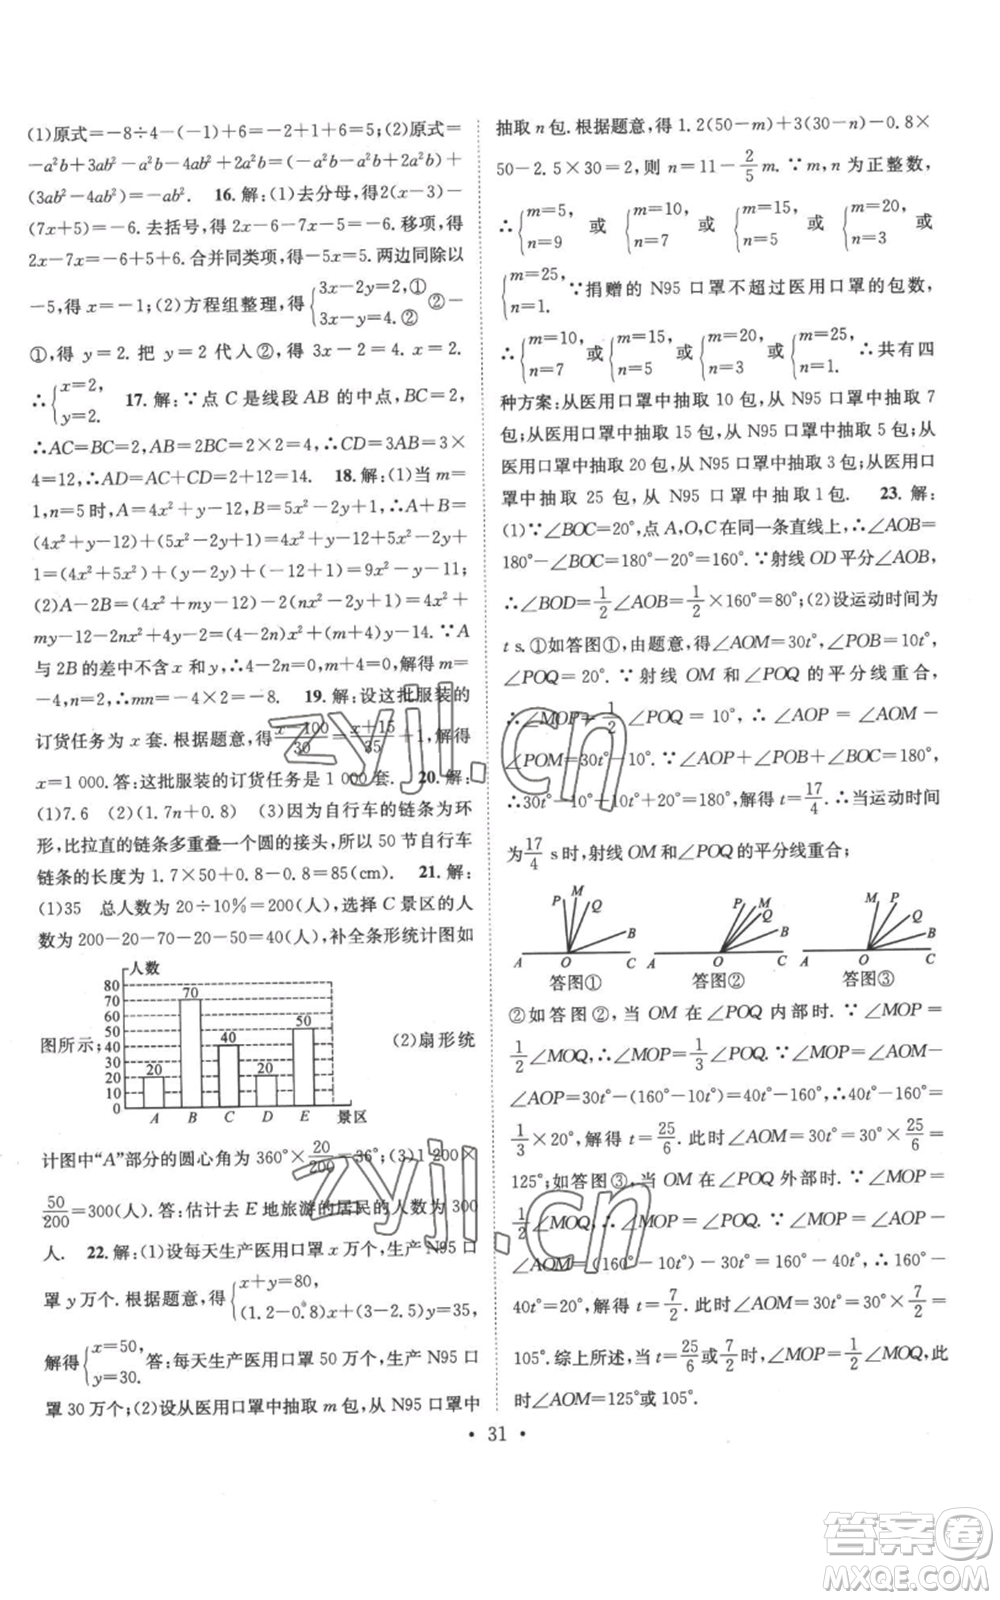 (1)原式=-8÷4-(-1)+6=-2+1+6=5;(2)原式=
-a²b+3ab²-a²b-4ab²+2a²b=(-a²b-a²b+2a²b)+
(3ab²-4ab²)=-ab². 16.解:(1)去分母,得2(x-3)-
(7x+5)=-6.去括号,得2x-6-7x-5=-6.移项,得
2x-7x=-6+5+6.合并同类项,得-5x=5.两边同除以
-5,得x=-1;(2)方程组整理,得{3x-2y=2,① 3x-y=4.② ②-
①,得 y=2. 把 y=2 代入②,得 3x-2=4. x=2.
∴{x=2, y=2. 17.解:∵点 C 是线段 AB 的中点,BC=2,
∴AC=BC=2,AB=2BC=2×2=4,∴CD=3AB=3×
4=12,∴AD=AC+CD=2+12=14. 18.解:(1)当 m=
1,n=5时,A=4x²+y-12,B=5x²-2y+1,∴A+B=
(4x²+y-12)+(5x²-2y+1)=4x²+y-12+5x²-2y+
1=(4x²+5x²)+(y-2y)+(-12+1)=9x²-y-11;
(2)A-2B=(4x²+my-12)-2(2nx²-2y+1)=4x²+
my-12-4nx²+4y-2=(4-2n)x²+(m+4)y-14.∵A
与 2B 的差中不含 x 和 y,∴4-2n=0,m+4=0,解得 m=
-4,n=2,∴mn=-4×2=-8. 19.解:设这批服装的
订货任务为 x 套.根据题意,得(x-100)/30=(x+15)/35+1,解得
x=1 000.答:这批服装的订货任务是 1 000 套. 20.解:
(1)7.6 (2)(1.7n+0.8) (3)因为自行车的链条为环
形,比拉直的链条多重叠一个圆的接头,所以 50 节自行车
链条的长度为 1.7×50+0.8-0.8=85(cm). 21.解:
(1)35 总人数为 20÷10%=200(人),选择 C 景区的人
数为 200-20-70-20-50=40(人),补全条形统计图如
图所示;
人数
80
70
60
50
40
30
20
10
0
20 70 40 20 50
A B C D E 景区
(2)扇形统
计图中“A”部分的圆心角为 360°×20/200=36°;(3)1 200×
50/200=300(人).答:估计去 E 地旅游的居民的人数为 300
人. 22.解:(1)设每天生产医用口罩 x 万个,生产 N95 口
罩 y 万个.根据题意,得{x+y=80, (1.2-0.8)x+(3-2.5)y=35,
解得{x=50, y=30. 答:每天生产医用口罩 50 万个,生产 N95 口
罩 30 万个;(2)设从医用口罩中抽取 m 包,从 N95 口罩中
抽取 n 包.根据题意,得 1.2(50-m)+3(30-n)-0.8×
50-2.5×30=35,则 n=11-2/5m.∵m,n 为正整数,
∴{m=5, n=9 或 {m=10, n=7 或 {m=15, n=5 或 {m=20, n=3 或
{m=25, n=1. ∵捐赠的 N95 口罩不超过医用口罩的包数,
∴{m=10, n=7 或 {m=15, n=5 或 {m=20, n=3 或 {m=25, n=1. ∴共有四
种方案:从医用口罩中抽取 10 包,从 N95 口罩中抽取 7
包;从医用口罩中抽取 15 包,从 N95 口罩中抽取 5 包;从
医用口罩中抽取 20 包,从 N95 口罩中抽取 3 包;从医用口
罩中抽取 25 包,从 N95 口罩中抽取1包. 23.解:
(1)∵∠BOC=20°,点 A,O,C 在同一条直线上,∴∠AOB=
180°-∠BOC=180°-20°=160°.∵射线 OD 平分∠AOB,
∴∠BOD=1/2∠AOB=1/2×160°=80°;(2)设运动时间为
t s.①如答图①,由题意,得∠AOM=30t°,∠POB=10t°,
∠POQ=20°.∵射线 OM 和∠POQ 的平分线重合,
∴∠MOP=1/2∠POQ=10°,∴∠AOP=∠AOM-
∠POM=30t°-10°.∵∠AOP+∠POB+∠BOC=180°,
∴30t°-10°+10t°+20°=180°,解得 t=17/4.∴当运动时间
为17/4 s时,射线 OM 和∠POQ 的平分线重合;
P M Q B A O C
答图①
P M Q B A O C
答图②
M P Q B A O C
答图③
②如答图②,当 OM 在∠POQ 内部时.∵∠MOP=
1/2∠MOQ,∴∠MOP=1/3∠POQ.∵∠MOP=∠AOM-
∠AOP=30t°-(160°-10t°)=40t°-160°,∴40t°-160°=
1/3×20°,解得 t=25/6.此时∠AOM=30t°=30°×25/6=
125°;如答图③,当 OM 在∠POQ 外部时.∵∠MOP=
1/2∠MOQ,∴∠MOP=∠POQ=20°.∵∠MOP=∠AOP-
∠AOM=(160°-10t°)-30t°=160°-40t°,∴160°-
40t°=20°,解得 t=7/2.此时∠AOM=30t°=30°×7/2=
105°.综上所述,当 t=25/6或7/2时,∠MOP=1/2∠MOQ,此
时∠AOM=125°或 105°.
• 31 •
zyjl.cn
zyjl.cn
答案圈
MXQE.COM